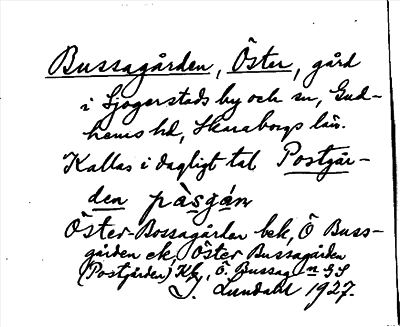 Bussagården, Öster, gård
i Sjogerstads by och sn, Gud-
hems hd, Skaraborgs län.
Kallas i dagligt tal Postgår-
den pàsgán
Öster-Bossagården bek, Ö Buss-
gården ek, Öster Bussagården
(Postgården) Kg, Ö. Bussag n GS
D. Lundahl 1927.